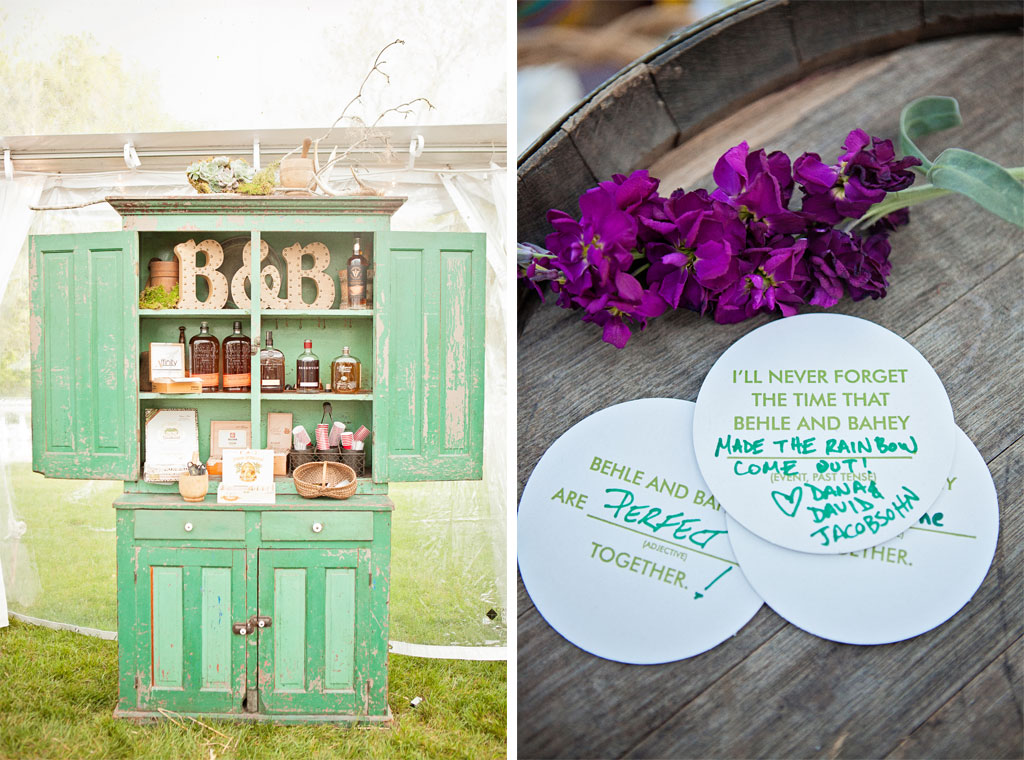 B&B
I'LL NEVER FORGET
THE TIME THAT
BEHLE AND BAHEY
MADE THE RAINBOW
COME OUT!
(EVENT, PAST TENSE)
♡ DANA &
DAVID
JACOBSOHN
BEHLE AND BA
ARE PERFECT
(ADJECTIVE)
TOGETHER. !